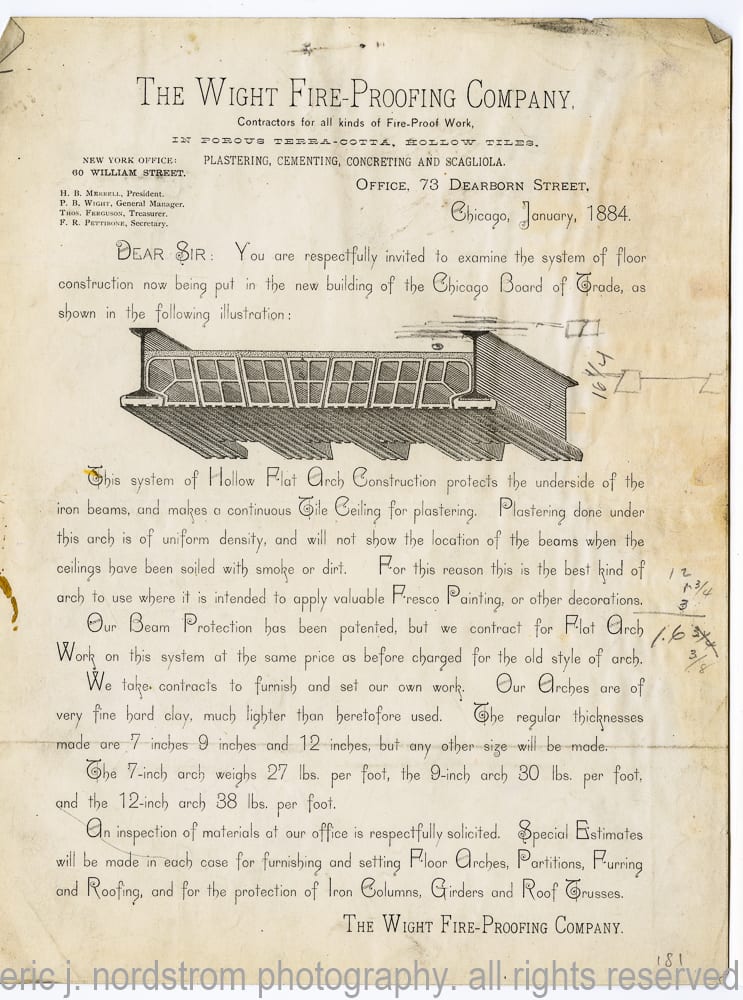 THE WIGHT FIRE-PROOFING COMPANY,
Contractors for all kinds of Fire-Proof Work,
IN POROUS TERRA-COTTA, HOLLOW TILES,
PLASTERING, CEMENTING, CONCRETING AND SCAGLIOLA.
NEW YORK OFFICE:
60 WILLIAM STREET.
H. B. MERRELL, President.
P. B. WIGHT, General Manager.
THOS. FERGUSON, Treasurer.
F. R. PETTIBONE, Secretary.
OFFICE, 73 DEARBORN STREET,
Chicago, January, 1884.
DEAR SIR: You are respectfully invited to examine the system of floor
construction now being put in the new building of the Chicago Board of Trade, as
shown in the following illustration:
16 1/4
This system of Hollow Flat Arch Construction protects the underside of the
iron beams, and makes a continuous Tile Ceiling for plastering. Plastering done under
this arch is of uniform density, and will not show the location of the beams when the
ceilings have been soiled with smoke or dirt. For this reason this is the best kind of
arch to use where it is intended to apply valuable Fresco Painting, or other decorations.
12
1 3/4
3
Our Beam Protection has been patented, but we contract for Flat Arch
Work on this system at the same price as before charged for the old style of arch.
1.6
3/8
We take contracts to furnish and set our own work. Our Arches are of
very fine hard clay, much lighter than heretofore used. The regular thicknesses
made are 7 inches 9 inches and 12 inches, but any other size will be made.
The 7-inch arch weighs 27 lbs. per foot, the 9-inch arch 30 lbs. per foot,
and the 12-inch arch 38 lbs. per foot.
An inspection of materials at our office is respectfully solicited. Special Estimates
will be made in each case for furnishing and setting Floor Arches, Partitions, Furring
and Roofing, and for the protection of Iron Columns, Girders and Roof Trusses.
THE WIGHT FIRE-PROOFING COMPANY.
181
eric j. nordstrom photography. all rights reserved